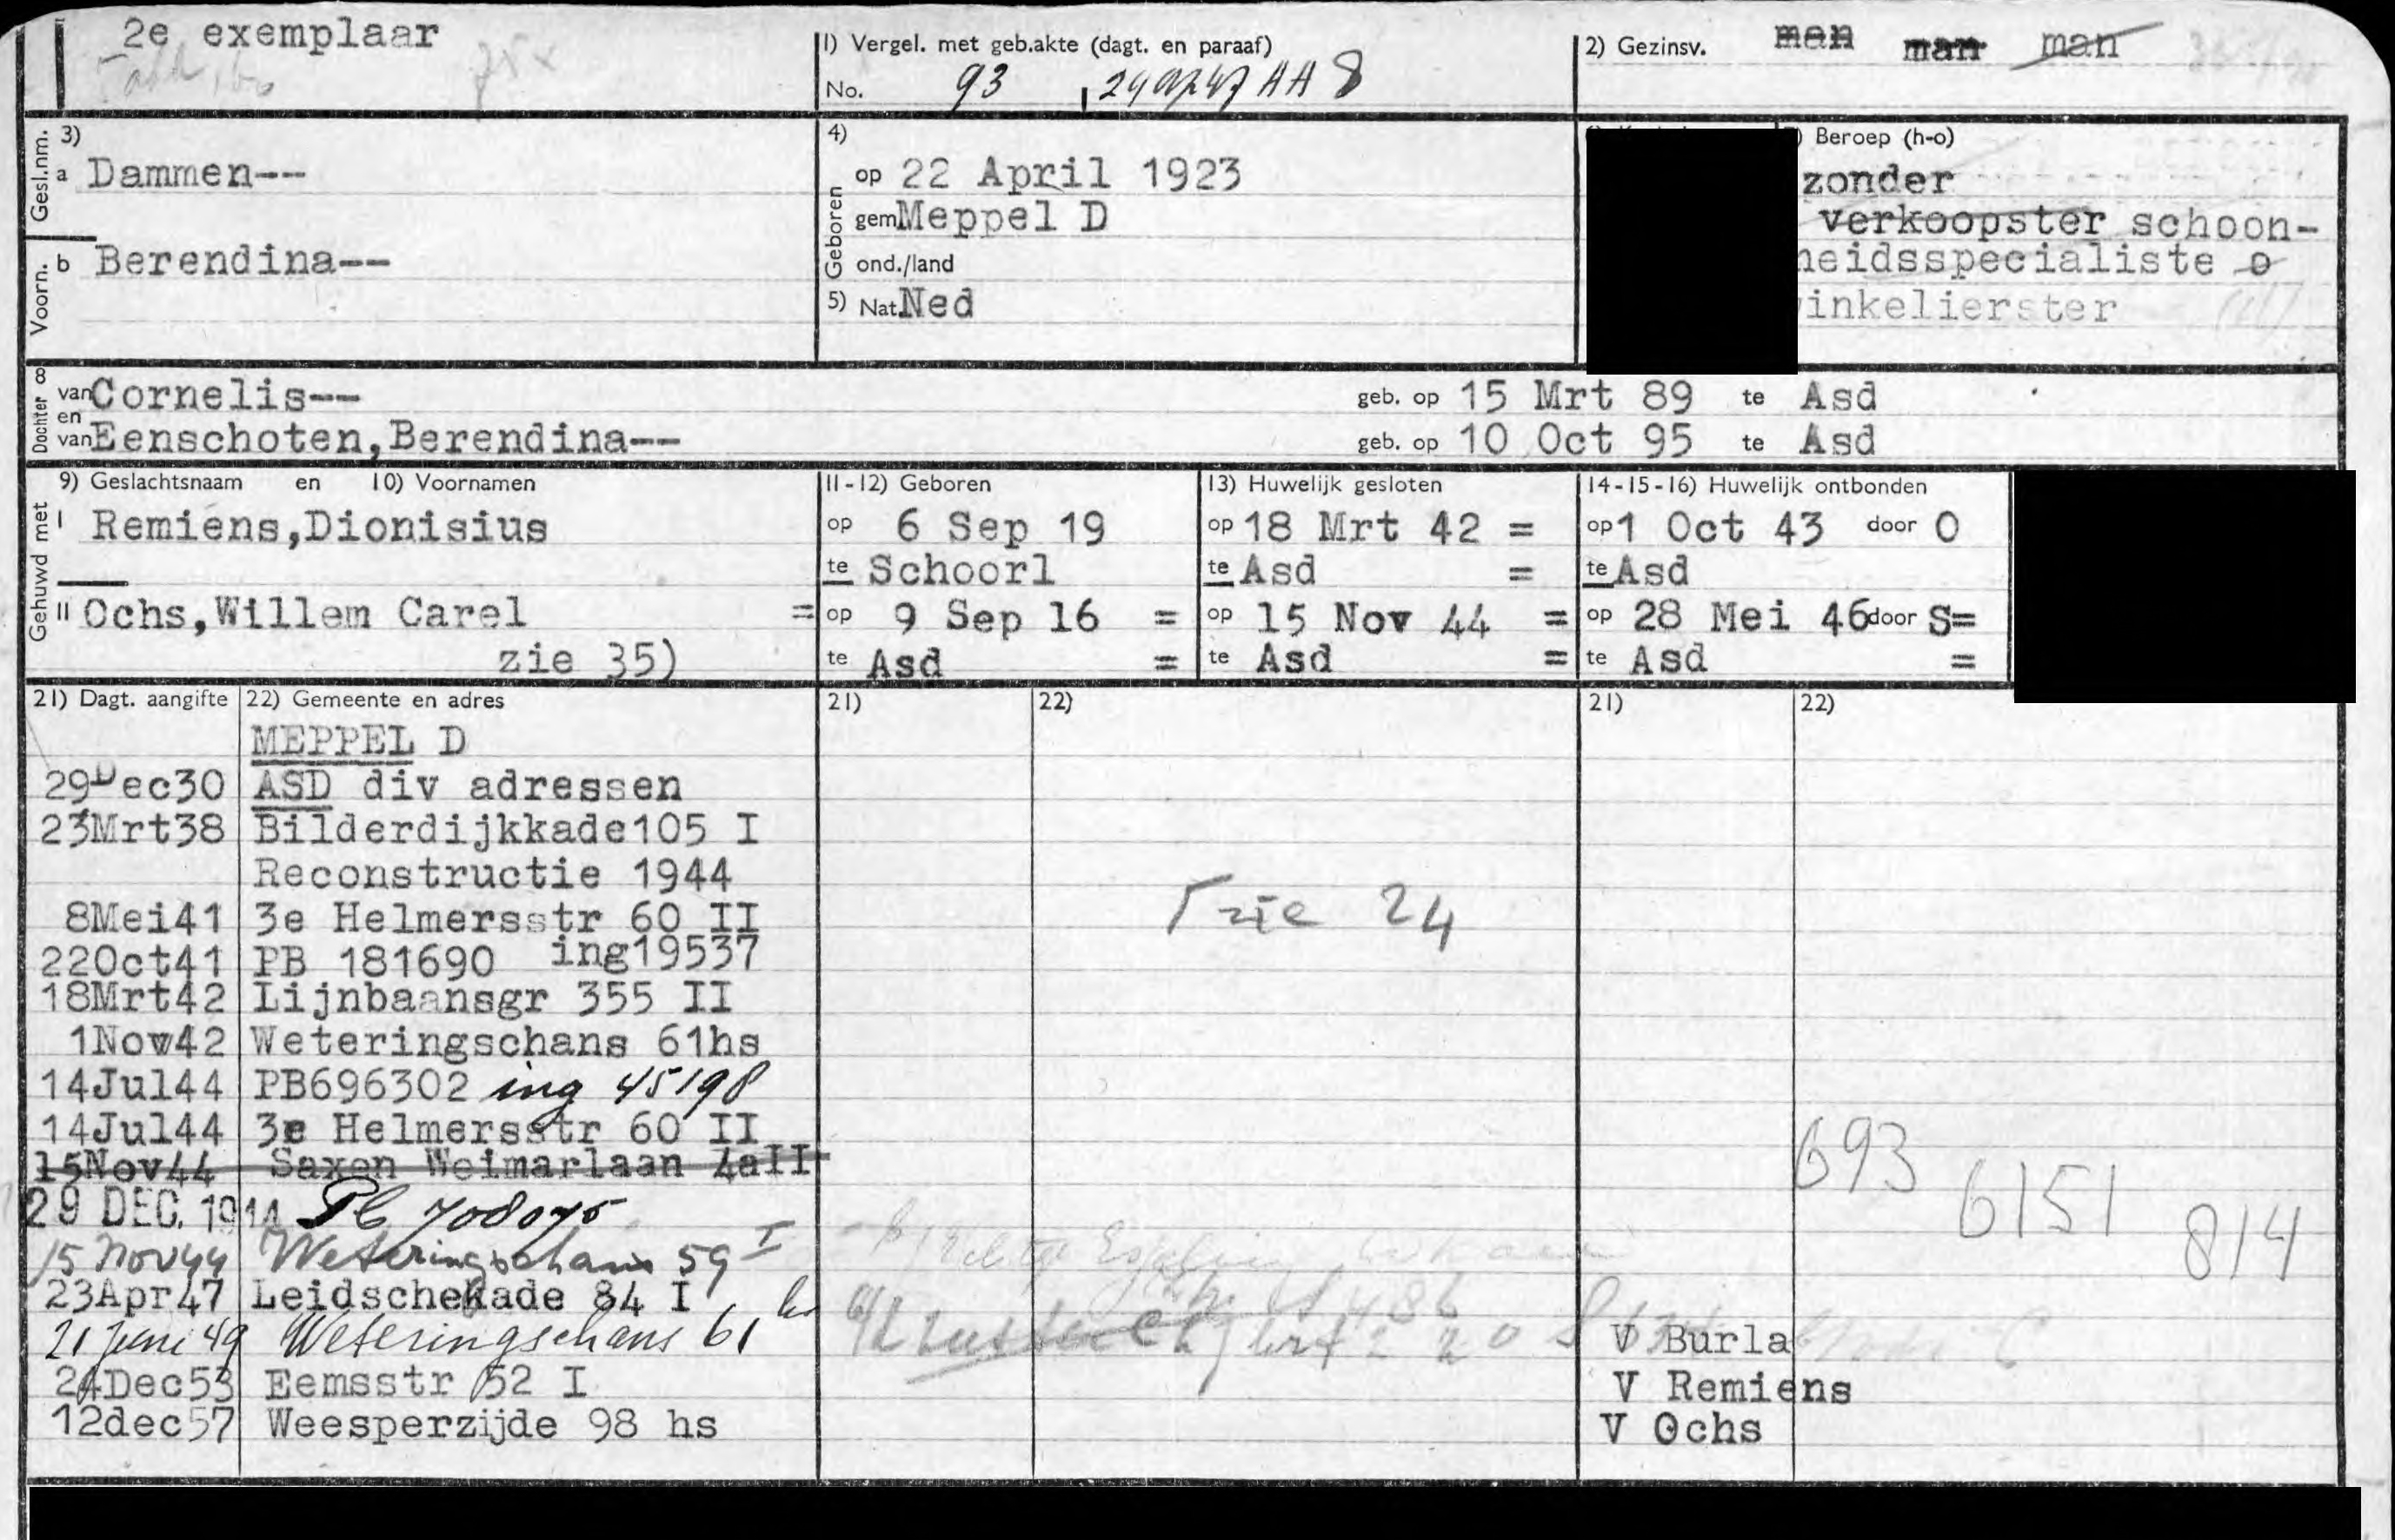 2e exemplaar
1) Vergel. met geb.akte (dagt. en paraaf)
No. 93
2) Gezinsv. man man man
Gesl.nm. 3)
a Dammen--
Voorn. b Berendina--
4)
Geboren op 22 April 1923
gem Meppel D
ond./land
5) Nat. Ned
Beroep (h-o)
zonder
verkoopster schoon-
heidsspecialiste o
inkelierster
Dochter 8
van Cornelis-- geb. op 15 Mrt 89 te Asd
en
van Eenschoten,Berendina-- geb. op 10 Oct 95 te Asd
Gehuwd met
9) Geslachtsnaam en 10) Voornamen
11-12) Geboren
13) Huwelijk gesloten
14-15-16) Huwelijk ontbonden
I Remiens,Dionisius op 6 Sep 19 op 18 Mrt 42 = op 1 Oct 43 door O
te Schoorl te Asd = te Asd
II Ochs,Willem Carel = op 9 Sep 16 = op 15 Nov 44 = op 28 Mei 46 door S=
zie 35) te Asd = te Asd = te Asd =
21) Dagt. aangifte 22) Gemeente en adres 21) 22) 21) 22)
MEPPEL D
29Dec30 ASD div adressen
23Mrt38 Bilderdijkkade105 I
Reconstructie 1944
8Mei41 3e Helmersstr 60 II
22Oct41 PB 181690 ing19537
18Mrt42 Lijnbaansgr 355 II
1Nov42 Weteringschans 61hs
14Jul44 PB696302 ing 45198
14Jul44 3e Helmersstr 60 II
15Nov44 Saxen Weimarlaan 4aII
29 DEC. 1944 Pb 708075
15 Nov 44 Weteringschans 59 I
23Apr47 Leidschekade 84 I
21 Juni 49 Weteringschans 61 hs
24Dec53 Eemsstr 52 I
12dec57 Weesperzijde 98 hs
zie 24
693
6151
814
V Burla
V Remiens
V Ochs